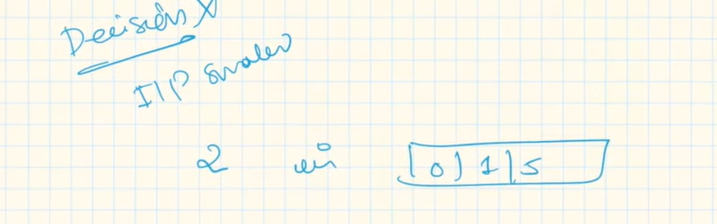 Decision
I/P smaller
2 in | 0 | 1 | 5